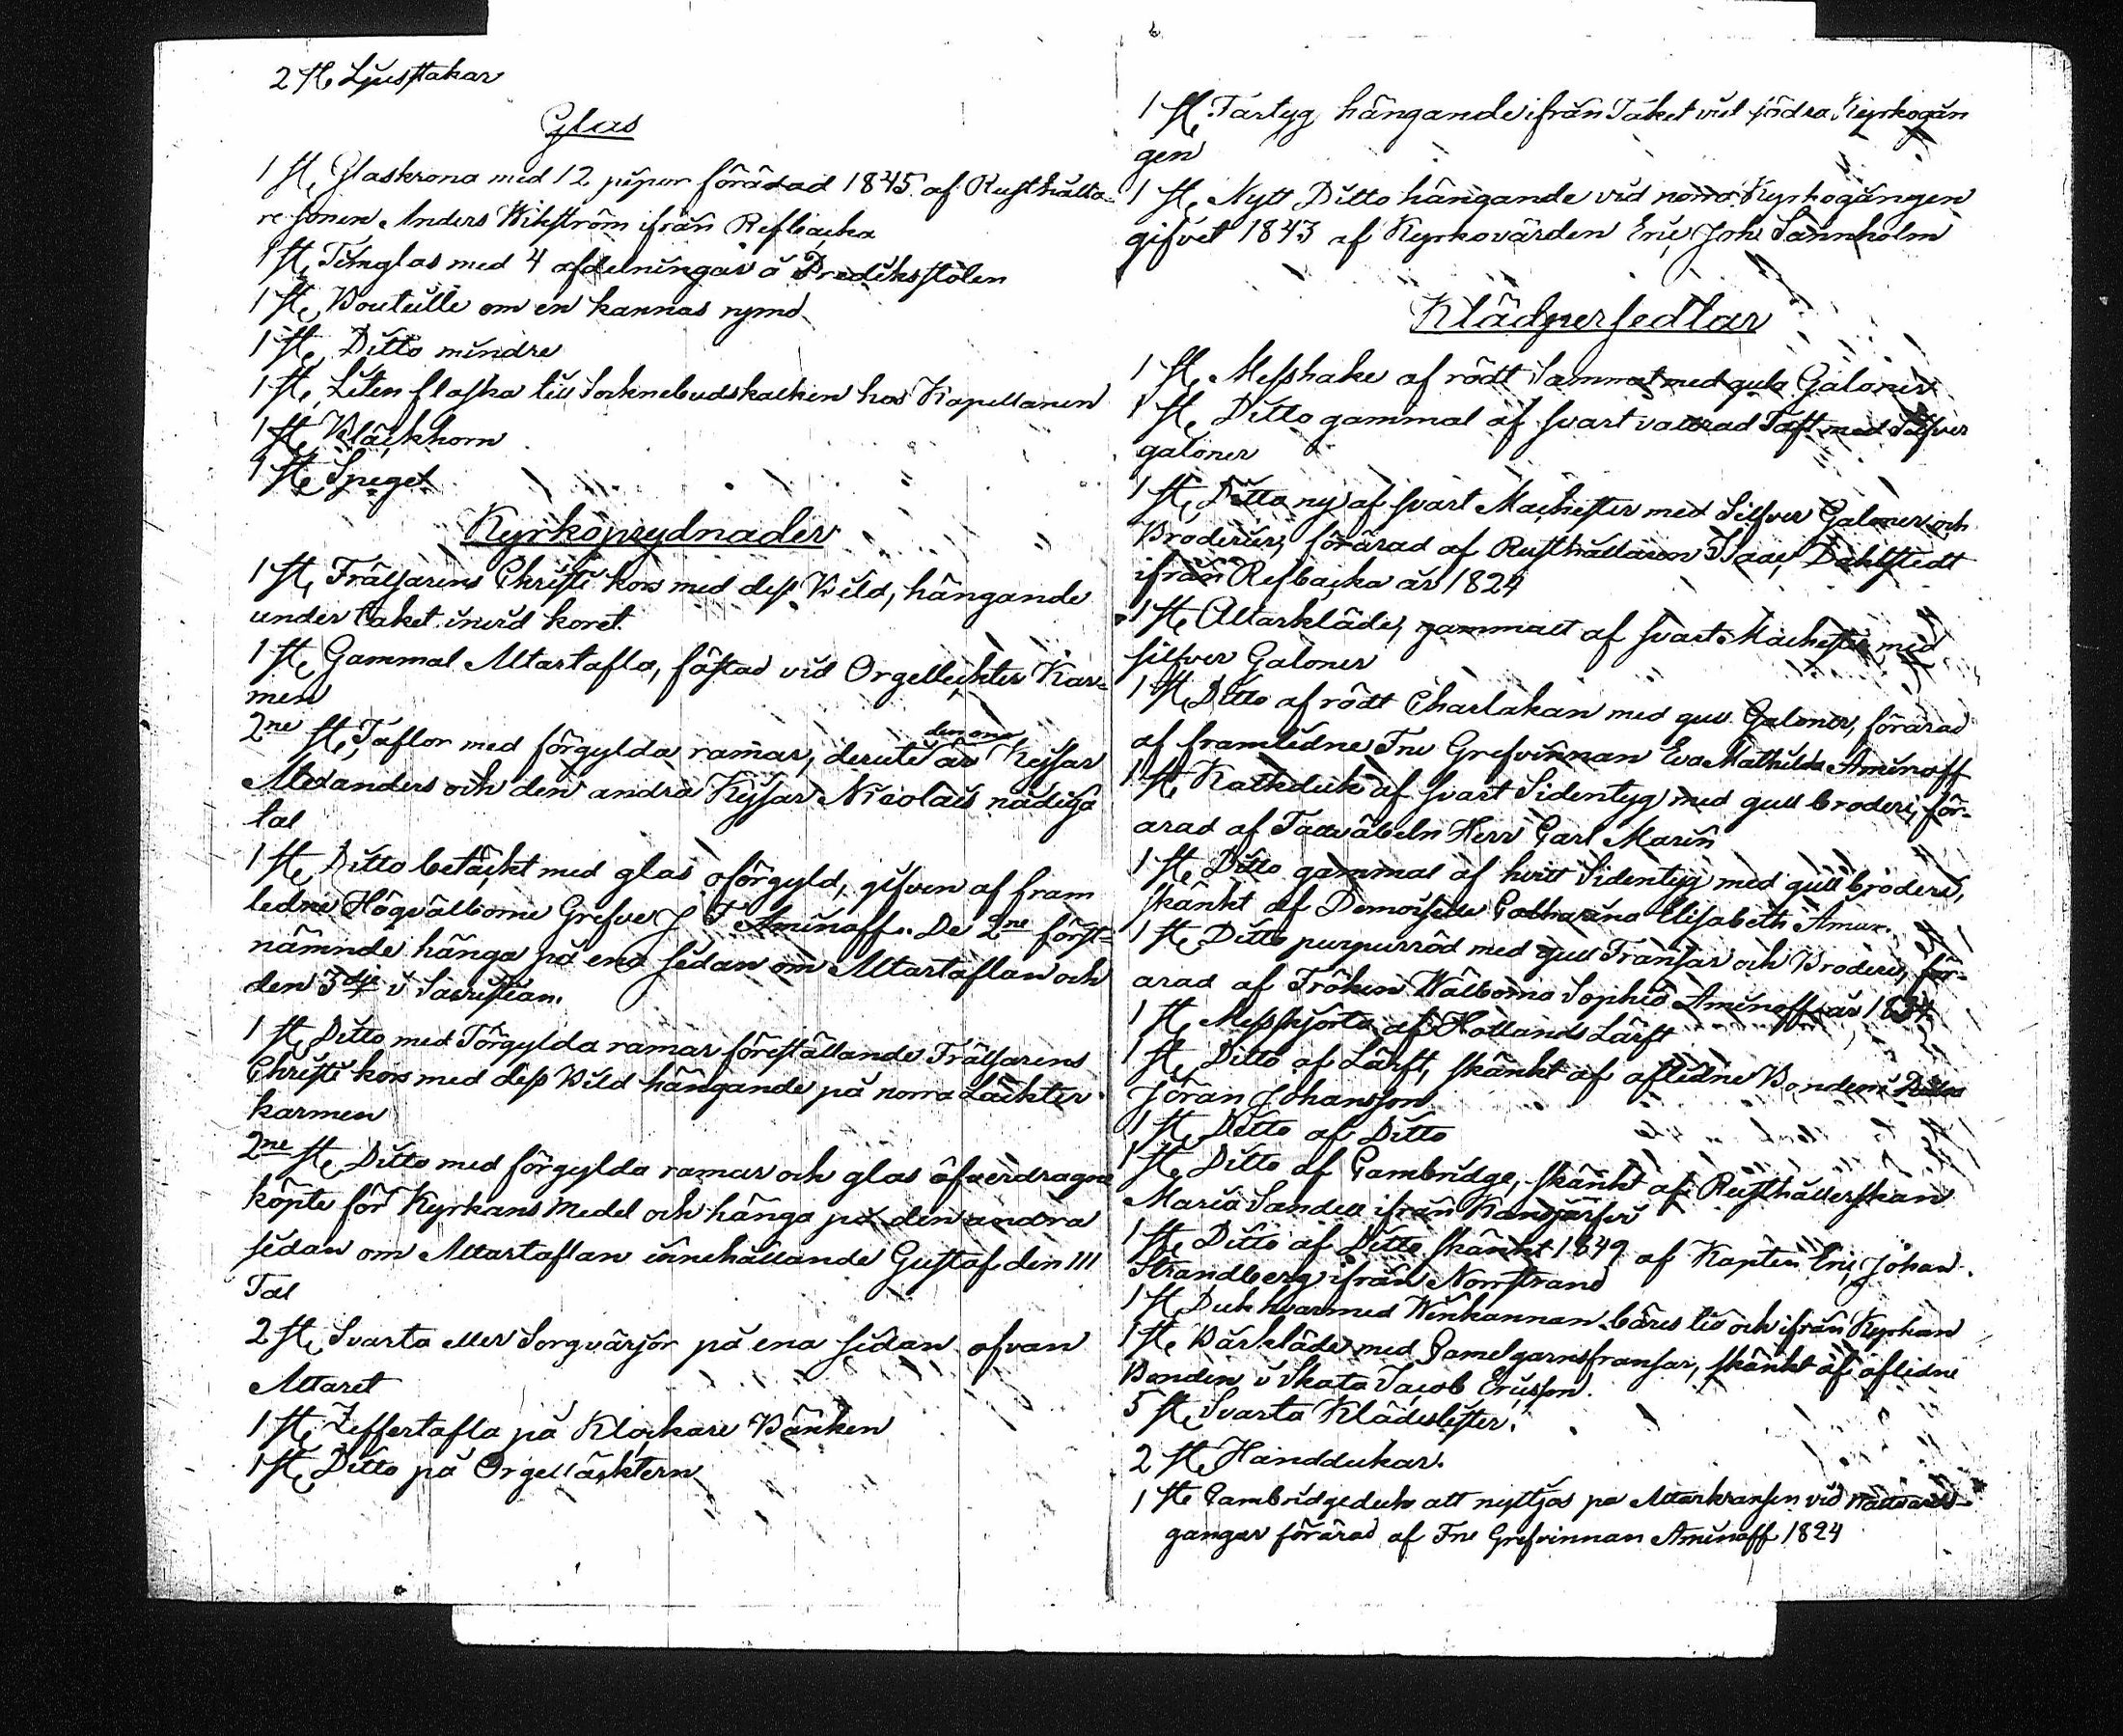 2 St. Ljusstakar
Glas
1 St. Glaskrona med 12 pipor förärad 1845 af Rusthålla-
re sonen Anders Wikström ifrån Refbacka
1 St. Timglas med 4 afdelningar å Predikstolen
1 St. Bouteille om en kannas rymd
1 St. Ditto mindre
1 St. Liten flaska till Socknebudskalken hos Kapellanen
1 St. Bläckhorn
1 St. Spegel
Kyrkoprydnader
1 St. Frälsarens Christi kors med dess Bild, hängande
under taket invid koret.
1 St. Gammal Altartafla, fästad vid Orgelleckter Kar-
men
2ne St. Taflor med förgylda ramar, deruti är den ena Kejsar
Alexanders och den andra Kejsar Nicolais nådiga
tal
1 St. Ditto betäckt med glas oförgyld, gifven af fram
ledne Högvälborne Grefve J F Aminoff. De 2ne först-
nämnde hänga på ena sidan om Altartaflan och
den 3dje i Sacristian.
1 St. Ditto med Förgylda ramar föreställande Frälsarens
Christi kors med dess Bild hängande på norra Läckter
karmen
2ne St. Ditto med förgylda ramar och glas öfverdragne
köpte för Kyrkans Medel och hänga på den andra
sidan om Altartaflan innehållande Gustaf den III
Tal
2 St. Svarta eller Sorgvärjor på ena sidan ofvan
Altaret
1 St. Zeffertafla på Klockare Bänken
1 St. Ditto på Orgelläcktern
1 St. Fartyg hängande ifrån Taket vid södra Kyrkogån
gen
1 St. Nytt Ditto hängande vid norra Kyrkogången
gifvet 1843 af Kyrkovärden Eric Joh. Sannholm
Klädpersedlar
1 St. Messhake af rödt Sammat med gula Galoner
1 St. Ditto gammal af svart vattrad Taft med Silfver
galoner
1 St. Ditto ny af svart Machester med Silfver Galoner och
Broderier, förärad af Rusthållaren Isaac Dahlstedt
ifrån Refbacka år 1824
1 St. Altarkläde, gammalt af svart Machester med
silfver Galoner
1 St. Ditto af rödt Charlakan med gull Galoner, förärad
af framlidne Fru Grefvinnan Eva Mathilda Aminoff
1 St. Kalkduk af svart Sidentyg med gull broderi, för-
arad af Herr Carl Marin
1 St. Ditto gammal af hvitt Sidentyg med gull broderi,
skänkt af Demoiselle Catharina Elisabeth Aman.
1 St. Ditto purpurröd med gull Fransar och Broderi, för-
arad af Fröken Wälborna Sophia Aminoff år 1834
1 St. Messkjorta af Hollands Lärft
1 St. Ditto af Lärft, skänkt af aflidne Bonden
Jöran Johansson
1 St. Ditto af Ditto
1 St. Ditto af Cambridge, skänkt af Rusthållerskan
Maria Sandell ifrån
1 St. Ditto af Ditto skänkt 1849 af Kapten Eric Johan
Strandberg ifrån Norrstrand
1 St. Duk hvarmed Winkannan bäres till och ifrån Kyrkan
1 St. Bårkläde med Camelgarnsfransar, skänkt af aflidne
Bonden i Skata Jacob Ericsson.
5 St. Svarta Klädeslister.
2 St. Handdukar.
1 St. Cambridgeduk att nyttjas på Altarkransen vid Nattvards-
gangar förärad af Fru Grefvinnan Aminoff 1824